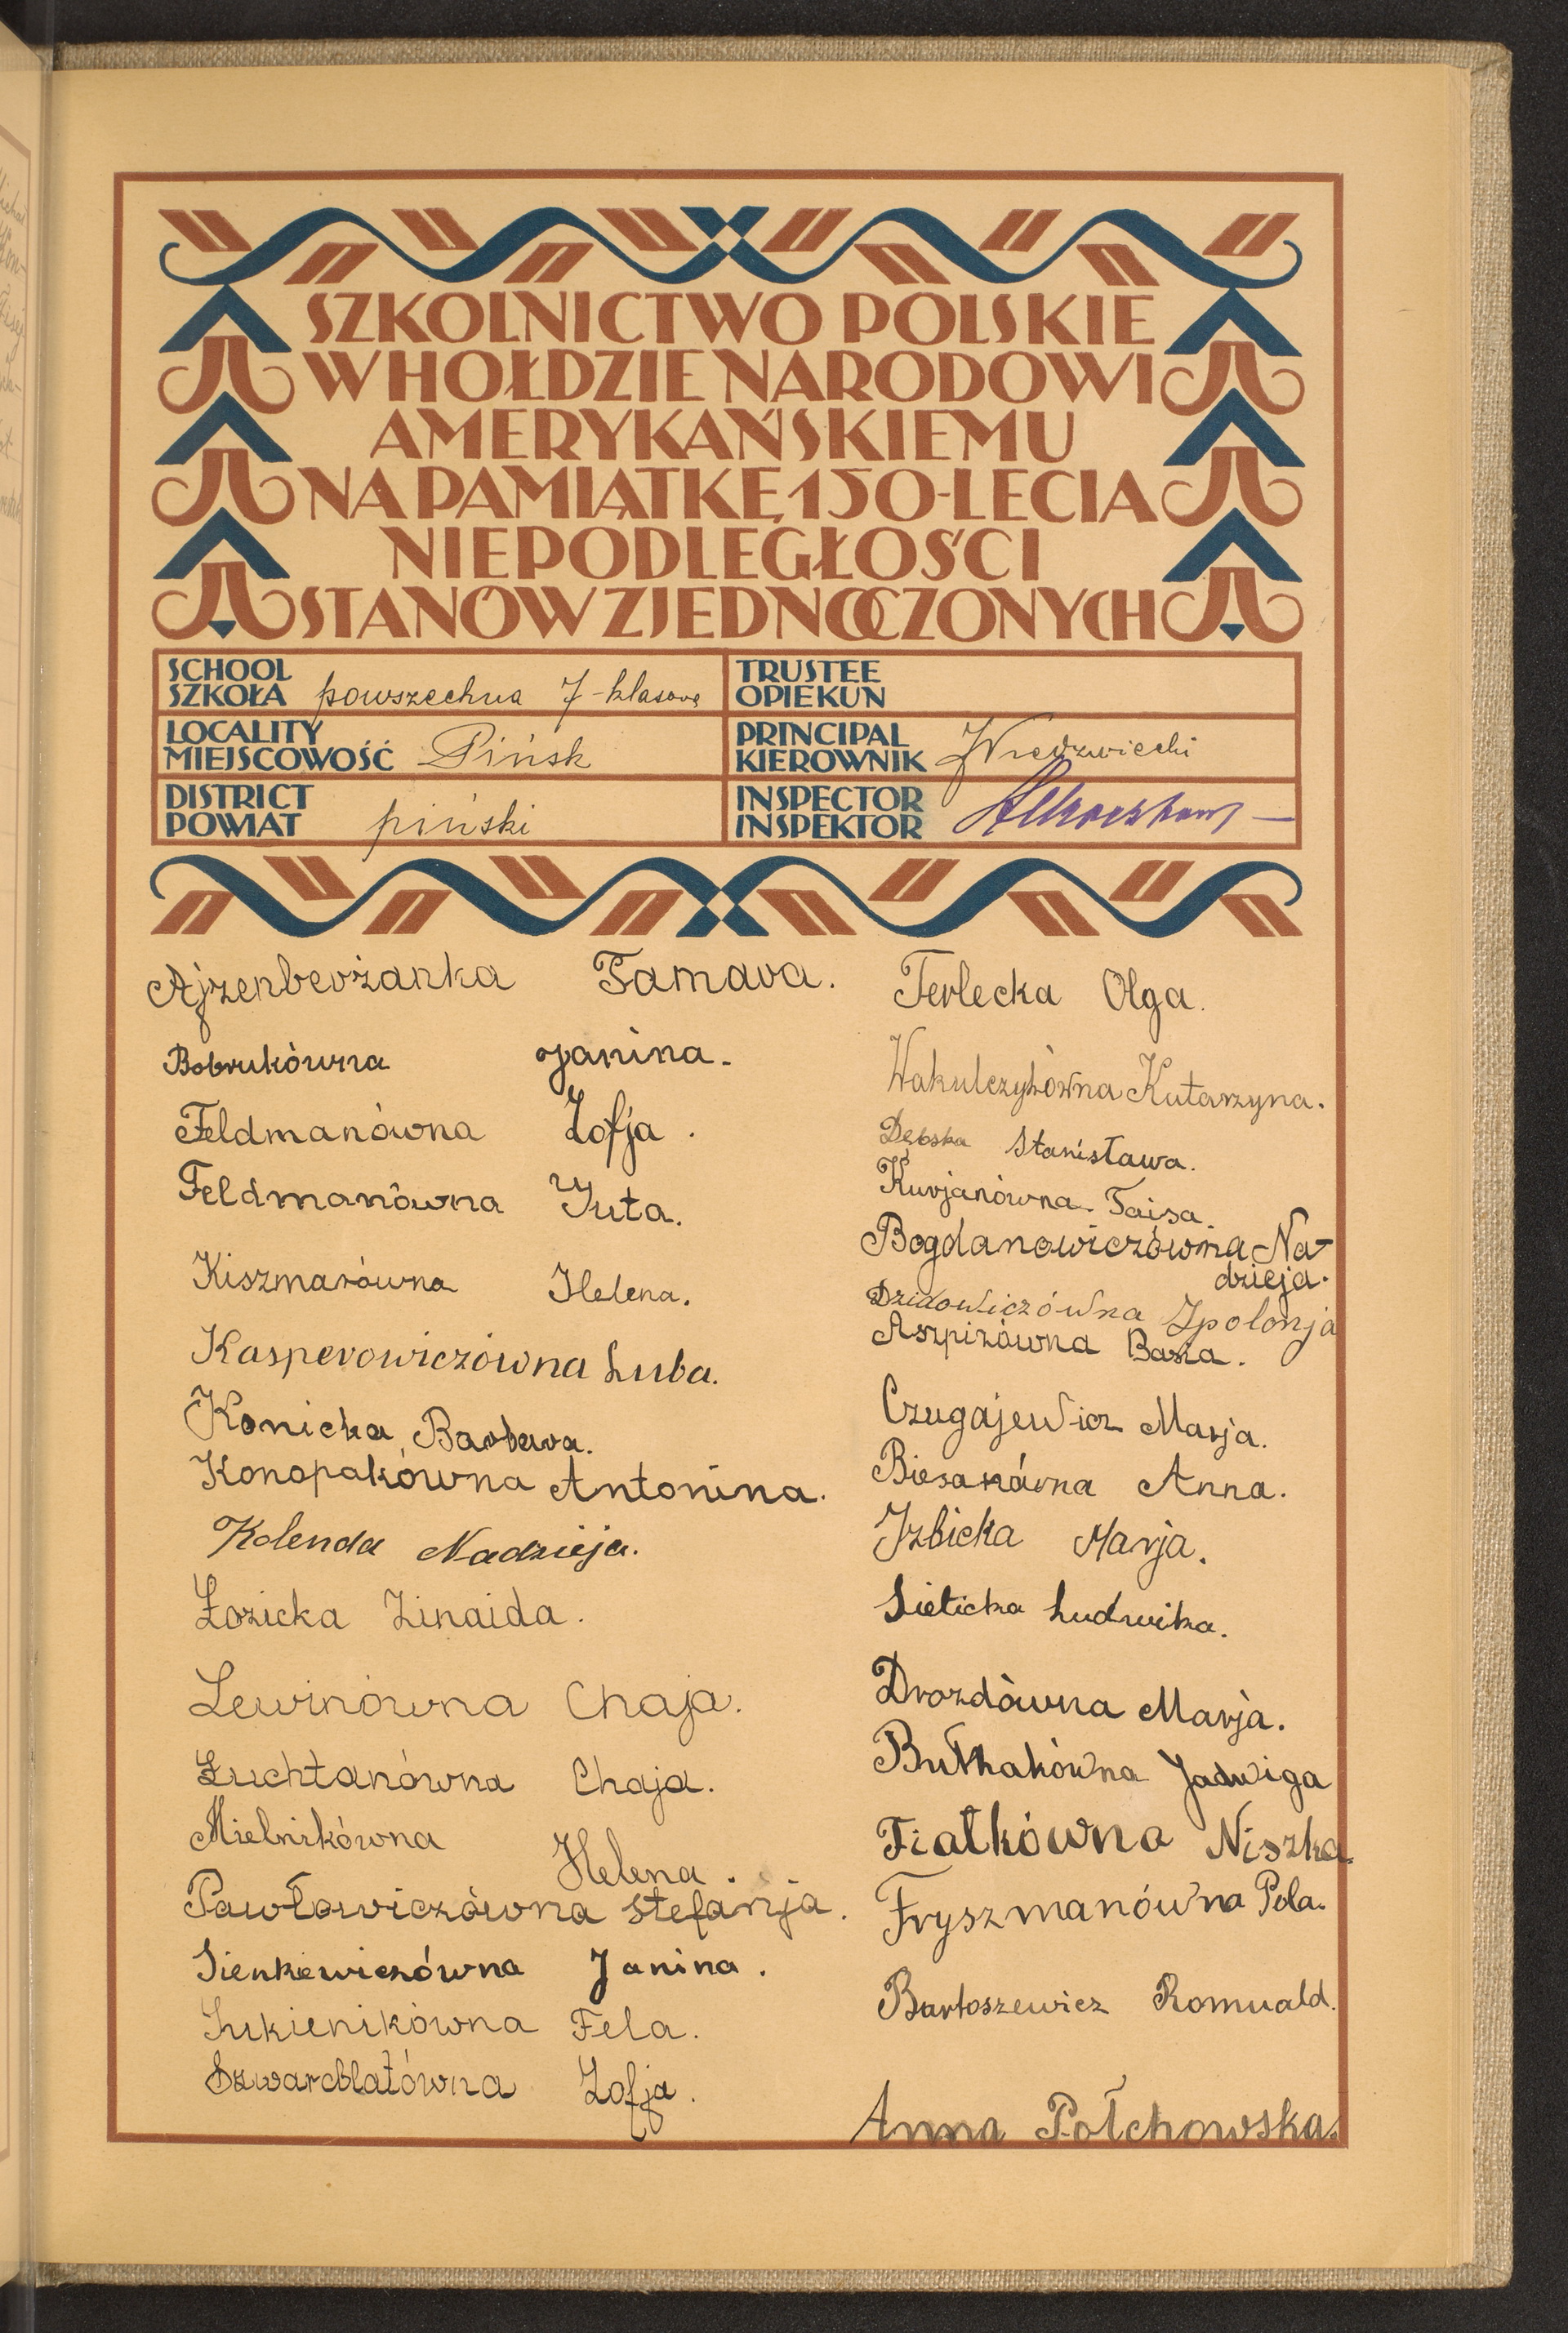 SZKOLNICTWO POLSKIE
W HOŁDZIE NARODOWI
AMERYKAŃSKIEMU
NA PAMIĄTKĘ 150-LECIA
NIEPODLEGŁOŚCI
STANÓW ZJEDNOCZONYCH
SCHOOL
SZKOŁA powszechna 7-klasowa
TRUSTEE
OPIEKUN
LOCALITY
MIEJSCOWOŚĆ Pińsk
PRINCIPAL
KIEROWNIK
DISTRICT
POWIAT piński
INSPECTOR
INSPEKTOR
Ajzenberżanka Tamara.
Bobrukówna Janina.
Feldmanówna Zofja.
Feldmanówna Juta.
Kiszmarówna Helena.
Kasperowiczówna Luba.
Konicka Barbara.
Konopakówna Antonina.
Kolenda Nadzieja.
Łozicka Zinaida.
Lewinówna Chaja.
Łuchtanówna Chaja.
Mielnikówna Helena.
Pawłowiczówna Stefanja.
Sienkiewiczówna Janina.
Sukienikówna Fela.
Szwarcblatówna Zofja.
Terlecka Olga.
Wakulczykówna Katarzyna.
Dębska Stanisława.
Kurjanówna Taisa.
Bogdanowiczówna Na-
dzieja.
Dzidowiczówna Apolonja
Aszpizówna Basia.
Czugajewicz Marja.
Biesanówna Anna.
Izbicka Marja.
Sielicka Ludwika.
Drozdówna Marja.
Bułhakówna Jadwiga
Fiałkówna Niszka.
Fryszmanówna Pola.
Bartoszewicz Romuald.
Anna Połchowska.